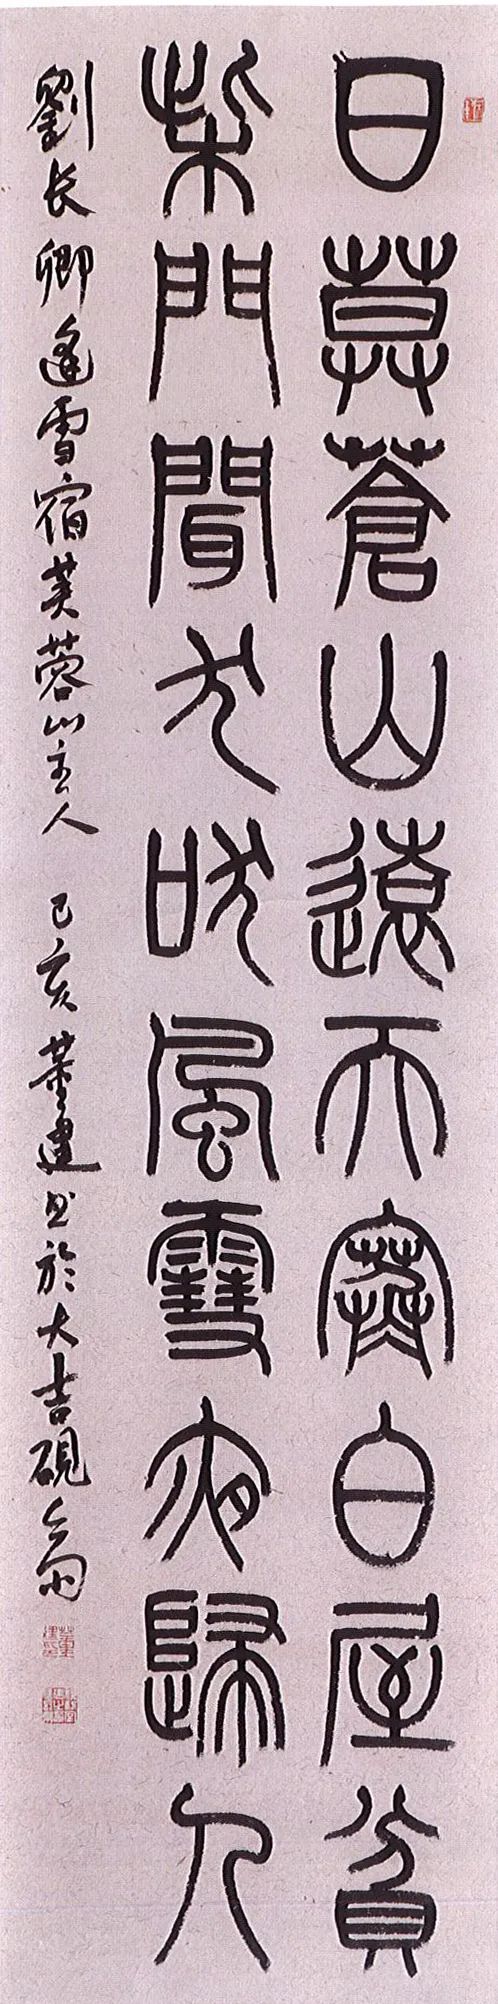 日莫蒼山遠天寒白屋貧
柴門聞犬吠風雪夜歸人
劉长卿逢雪宿芙蓉山主人 己亥 董建书於大吉硯斋